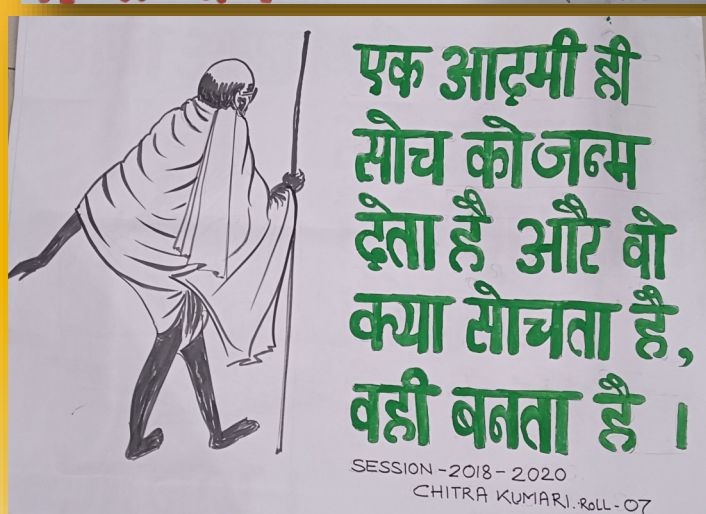 एक आदमी ही
सोच को जन्म
देता है और वो
क्या सोचता है,
वही बनता है ।
SESSION-2018-2020
CHITRA KUMARI. ROLL-07